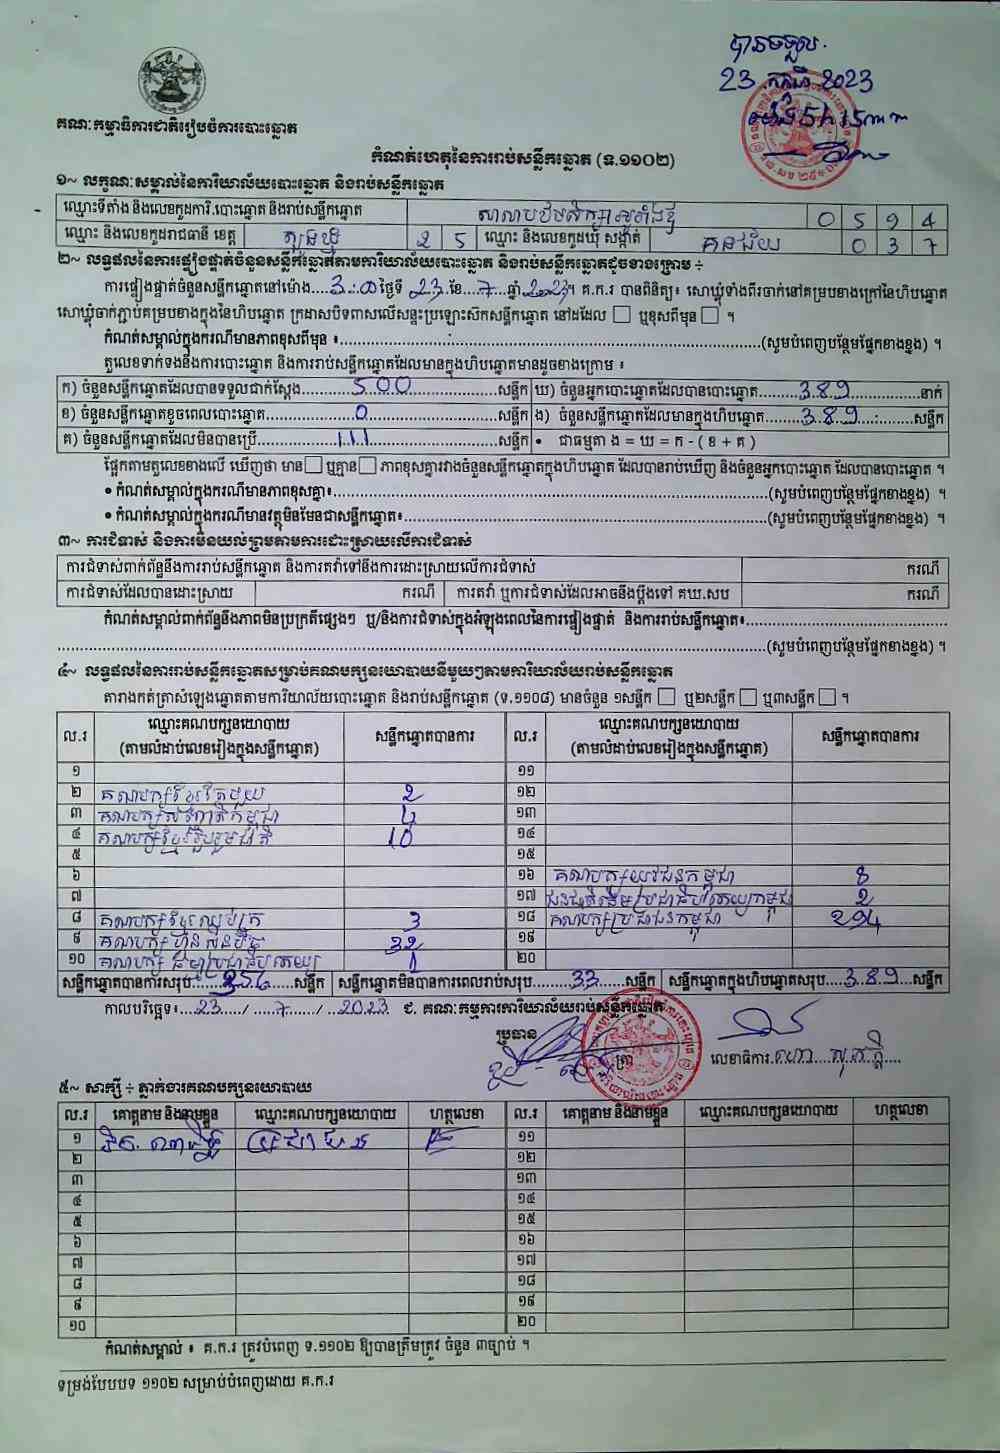 បានទទួល
23 កក្កដា 2023
ម៉ោង 5h 15
គណៈកម្មាធិការជាតិរៀបចំការបោះឆ្នោត
កំណត់ហេតុនៃការរាប់សន្លឹកឆ្នោត (ទ.១១០២)
១~ លក្ខណៈសម្គាល់នៃការិយាល័យបោះឆ្នោត និងរាប់សន្លឹកឆ្នោត
ឈ្មោះទីតាំង និងលេខកូដការិ.បោះឆ្នោត និងរាប់សន្លឹកឆ្នោត 0 5 9 4
ឈ្មោះ និងលេខកូដរាជធានី ខេត្ត ត្បូងឃ្មុំ 2 5 ឈ្មោះ និងលេខកូដឃុំ សង្កាត់ គងជ័យ 0 3 7
២~ លទ្ធផលនៃការផ្ទៀងផ្ទាត់ចំនួនសន្លឹកឆ្នោតតាមការិយាល័យបោះឆ្នោត និងរាប់សន្លឹកឆ្នោតដូចខាងក្រោម ÷
ការផ្ទៀងផ្ទាត់ចំនួនសន្លឹកឆ្នោតនៅម៉ោង....3:00ថ្ងៃទី 23 ខែ 7 ឆ្នាំ 2023។ គ.ក.រ បានពិនិត្យ៖ សោឃ្លុំទាំងពីរចាក់នៅគម្របខាងក្រៅនៃហិបឆ្នោត
សោឃ្លុំចាក់ភ្ជាប់គម្របខាងក្នុងនៃហិបឆ្នោត ក្រដាសបិទពាសលើសន្ទះប្រឡោះសិកសន្លឹកឆ្នោត នៅដដែល □ ឬខុសពីមុន □ ។
កំណត់សម្គាល់ក្នុងករណីមានភាពខុសពីមុន ៖..........(សូមបំពេញបន្ថែមផ្នែកខាងខ្នង) ។
តួលេខទាក់ទងនឹងការបោះឆ្នោត និងការរាប់សន្លឹកឆ្នោតដែលមានក្នុងហិបឆ្នោតមានដូចខាងក្រោម ៖
ក) ចំនួនសន្លឹកឆ្នោតដែលបានទទួលជាក់ស្តែង....500....សន្លឹក ឃ) ចំនួនអ្នកបោះឆ្នោតដែលបានបោះឆ្នោត....389....នាក់
ខ) ចំនួនសន្លឹកឆ្នោតខូចពេលបោះឆ្នោត....0....សន្លឹក ង) ចំនួនសន្លឹកឆ្នោតដែលមានក្នុងហិបឆ្នោត....389....សន្លឹក
គ) ចំនួនសន្លឹកឆ្នោតដែលមិនបានប្រើ....111....សន្លឹក • ជាធម្មតា ង = ឃ = ក - ( ខ + គ )
ផ្អែកតាមតួលេខខាងលើ ឃើញថា មាន□ ឬគ្មាន□ ភាពខុសគ្នារវាងចំនួនសន្លឹកឆ្នោតក្នុងហិបឆ្នោត ដែលបានរាប់ឃើញ និងចំនួនអ្នកបោះឆ្នោត ដែលបានបោះឆ្នោត ។
• កំណត់សម្គាល់ក្នុងករណីមានភាពខុសគ្នា៖..........(សូមបំពេញបន្ថែមផ្នែកខាងខ្នង) ។
• កំណត់សម្គាល់ក្នុងករណីមានវត្ថុមិនមែនជាសន្លឹកឆ្នោត៖..........(សូមបំពេញបន្ថែមផ្នែកខាងខ្នង) ។
៣~ ការជំទាស់ និងការមិនយល់ព្រមតាមការដោះស្រាយលើការជំទាស់
ការជំទាស់ពាក់ព័ន្ធនឹងការរាប់សន្លឹកឆ្នោត និងការតវ៉ាទៅនឹងការដោះស្រាយលើការជំទាស់ ករណី
ការជំទាស់ដែលបានដោះស្រាយ ករណី ការតវ៉ា ឬការជំទាស់ដែលអាចនឹងប្តឹងទៅ គឃ.សប ករណី
កំណត់សម្គាល់ពាក់ព័ន្ធនឹងភាពមិនប្រក្រតីផ្សេងៗ ឬ/និងការជំទាស់ក្នុងអំឡុងពេលនៃការផ្ទៀងផ្ទាត់ និងការរាប់សន្លឹកឆ្នោត៖..........
..........(សូមបំពេញបន្ថែមផ្នែកខាងខ្នង) ។
៤~ លទ្ធផលនៃការរាប់សន្លឹកឆ្នោតសម្រាប់គណបក្សនយោបាយនីមួយៗតាមការិយាល័យរាប់សន្លឹកឆ្នោត
តារាងកត់ត្រាសំឡេងឆ្នោតតាមការិយាល័យបោះឆ្នោត និងរាប់សន្លឹកឆ្នោត (ទ.១១០៨) មានចំនួន ១សន្លឹក □ ឬ២សន្លឹក □ ឬ៣សន្លឹក □ ។
ល.រ ឈ្មោះគណបក្សនយោបាយ (តាមលំដាប់លេខរៀងក្នុងសន្លឹកឆ្នោត) សន្លឹកឆ្នោតបានការ ល.រ ឈ្មោះគណបក្សនយោបាយ (តាមលំដាប់លេខរៀងក្នុងសន្លឹកឆ្នោត) សន្លឹកឆ្នោតបានការ
១ ១១
២ គណបក្សខ្មែរតែមួយ 2 ១២
៣ 4 ១៣
៤ គណបក្សខ្មែររួបរួមជាតិ 10 ១៤
៥ ១៥
៦ ១៦ គណបក្សយុវជនកម្ពុជា 8
៧ ១៧ 2
៨ គណបក្សខ្មែរឈប់ក្រ 3 ១៨ គណបក្សប្រជាជនកម្ពុជា 294
៩ គណបក្សហ្វ៊ុនស៊ិនប៉ិច 32 ១៩
១០ គណបក្ស ធម្មាធិបតេយ្យ 1 ២០
សន្លឹកឆ្នោតបានការសរុប....356....សន្លឹក សន្លឹកឆ្នោតមិនបានការពេលរាប់សរុប....33....សន្លឹក សន្លឹកឆ្នោតក្នុងហិបឆ្នោតសរុប....389....សន្លឹក
កាលបរិច្ឆេទ៖....23..../....7..../....2023 ៥. គណៈកម្មការការិយាល័យរាប់សន្លឹកឆ្នោត
ប្រធាន ត្រា លេខាធិការ
៥~ សាក្សី ÷ ភ្នាក់ងារគណបក្សនយោបាយ
ល.រ គោត្តនាម និងនាមខ្លួន ឈ្មោះគណបក្សនយោបាយ ហត្ថលេខា ល.រ គោត្តនាម និងនាមខ្លួន ឈ្មោះគណបក្សនយោបាយ ហត្ថលេខា
១ ប្រជាជន ១១
២ ១២
៣ ១៣
៤ ១៤
៥ ១៥
៦ ១៦
៧ ១៧
៨ ១៨
៩ ១៩
១០ ២០
កំណត់សម្គាល់ ៖ គ.ក.រ ត្រូវបំពេញ ទ.១១០២ ឱ្យបានត្រឹមត្រូវ ចំនួន ៣ច្បាប់ ។
ទម្រង់បែបបទ ១១០២ សម្រាប់បំពេញដោយ គ.ក.រ